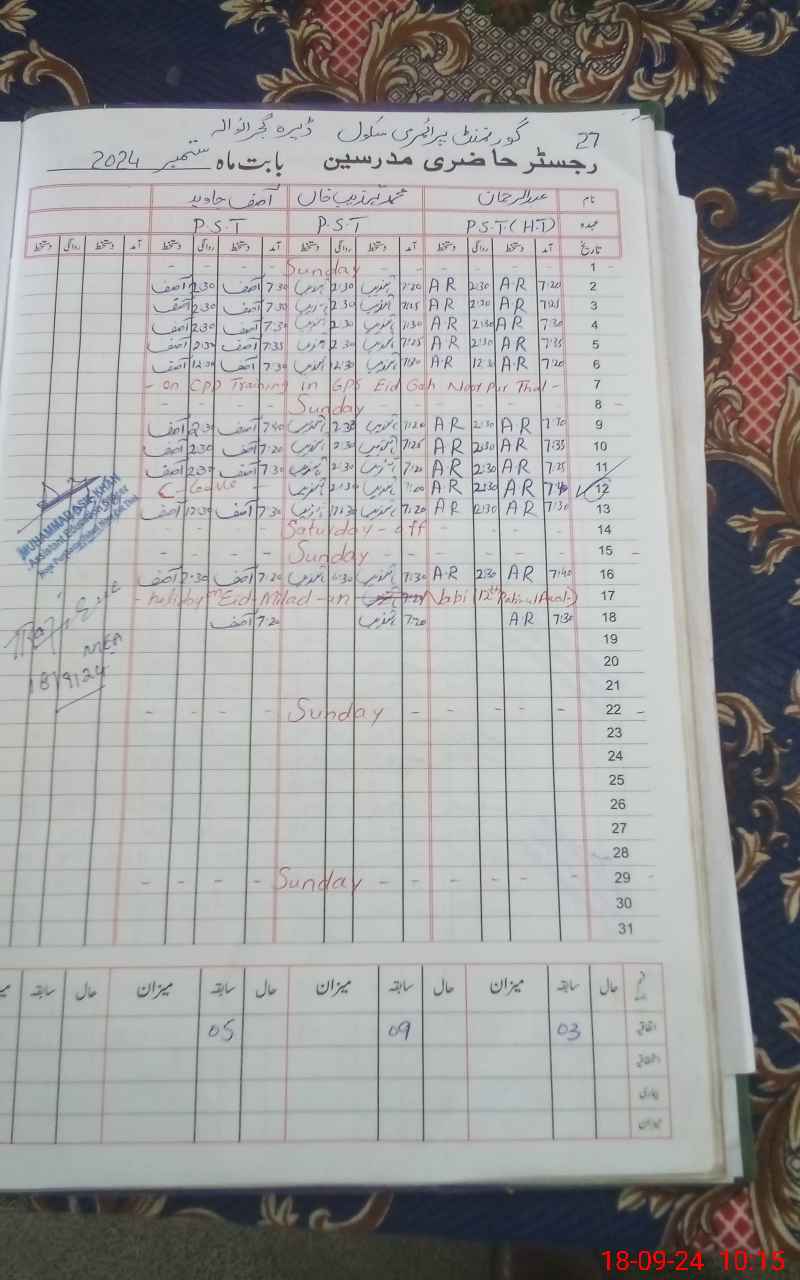 27
گورنمنٹ پرائمری سکول ڈیرہ گجرانوالہ
رجسٹر حاضری مدرسین بابت ماہ ستمبر 2024
نام عبدالرحمان محمد تہذیب خاں آصف جاوید
عہدہ P.S.T (H.T) P.S.T P.S.T
تاریخ آمد دستخط روانگی دستخط آمد دستخط روانگی دستخط آمد دستخط روانگی دستخط آمد دستخط روانگی دستخط
1 - - - - Sunday - - - -
2 7:20 AR 2:30 AR 7:20 تہذیب 2:30 تہذیب 7:30 آصف 2:30 آصف
3 7:25 AR 2:30 AR 7:25 تہذیب 2:30 تہذیب 7:30 آصف 2:30 آصف
4 7:30 AR 2:30 AR 7:30 تہذیب 2:30 تہذیب 7:30 آصف 2:30 آصف
5 7:35 AR 2:30 AR 7:25 تہذیب 2:30 تہذیب 7:35 آصف 2:30 آصف
6 7:20 A.R 12:30 A.R تہذیب 12:30 تہذیب 7:30 آصف 12:30 آصف
7 - on CPD Training in GPS Eid Gah Noor Pur Thal -
8 - - - - Sunday - - -
9 AR 2:30 AR 7:20 تہذیب 2:30 تہذیب 7:40 آصف 2:30 آصف
10 7:35 AR 2:30 AR 7:25 تہذیب 2:30 تہذیب 7:20 آصف 2:30 آصف
11 7:25 AR 2:30 AR 7:20 تہذیب 2:30 تہذیب 7:30 آصف 2:30 آصف
12 AR 2:30 AR 7:20 تہذیب 2:30 تہذیب C-Leave -
13 7:30 AR 12:30 AR 7:20 تہذیب 12:30 تہذیب 7:30 آصف 12:30 آصف
14 Saturday - off - - -
15 - - - - Sunday - - - -
16 7:40 AR 2:30 A.R 7:30 تہذیب تہذیب 7:20 آصف 2:30 آصف
17 - holiday Eid-Milad-un Nabi (12th Rabi-ul-Awal)
18 7:30 AR 7:20 تہذیب 7:20 آصف
19
20
21
22 - - - - Sunday - - - -
23
24
25
26
27
28
29 - - - - Sunday - - - -
30
31
MUHAMMAD ASIS KHAN
Assistant Education Officer
MEA
18/9/24
حال سابقہ میزان حال سابقہ میزان حال سابقہ میزان حال سابقہ
اتفاقیہ 03 09 05
بیماری
میزان
18-09-24 10:15